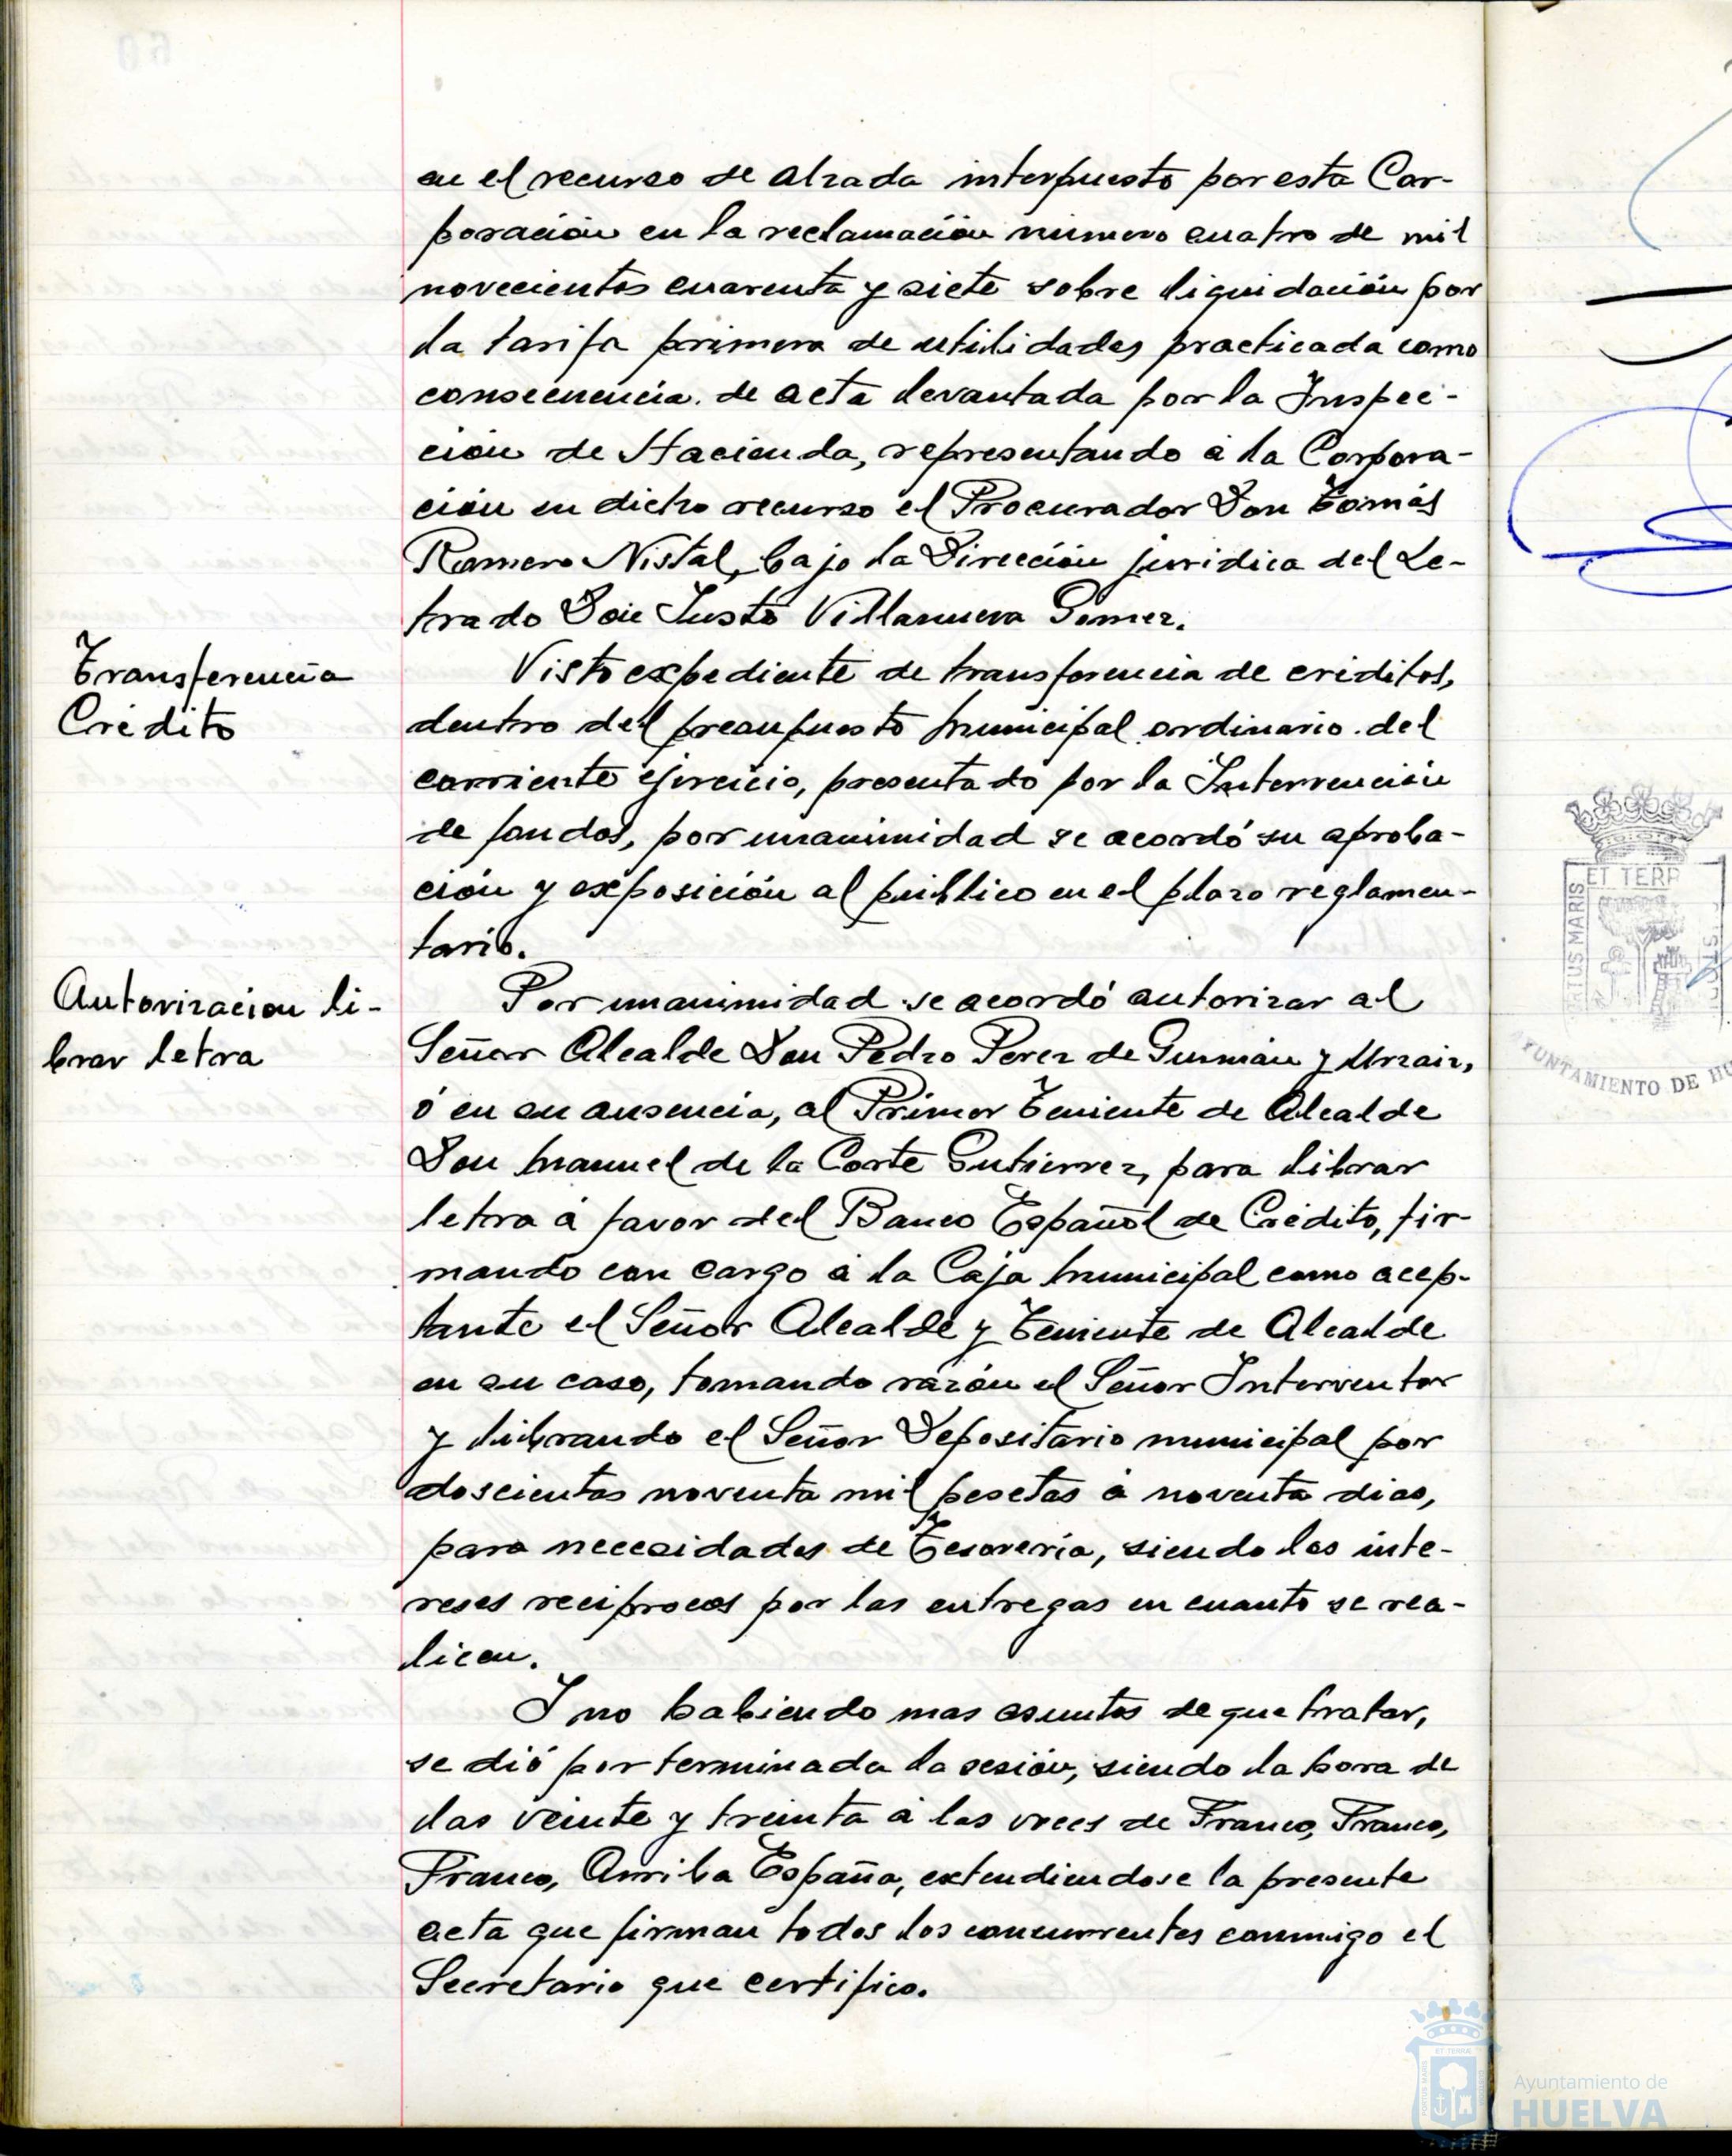 en el recurso de alzada interpuesto por esta Cor-
poración en la reclamación número cuatro de mil
novecientos cuarenta y siete sobre liquidación por
la tarifa primera de utilidades practicada como
consecuencia de acta levantada por la Inspec-
ción de Hacienda, representando á la Corpora-
ción en dicho recurso el Procurador Don Tomás
Romero Nistal, bajo la Dirección juridica del Le-
trado Don Justo Villanueva Gomez.
Transferencia
Crédito
Visto expediente de transferencia de créditos,
dentro del presupuesto municipal ordinario del
corriente ejercicio, presentado por la Intervención
de fondos, por unanimidad se acordó su aproba-
ción y exposición al público en el plazo reglamen-
tario.
Autorizacion li-
brar letra
Por unanimidad se acordó autorizar al
Señor Alcalde Don Pedro Perez de Guzmán y Urzaiz,
ó en su ausencia, al Primer Teniente de Alcalde
Don Manuel de la Corte Gutierrez, para librar
letra á favor del Banco Español de Crédito, fir-
mando con cargo á la Caja Municipal como acep-
tante el Señor Alcalde y Teniente de Alcalde
en su caso, tomando razón el Señor Interventor
y librando el Señor Depositario municipal por
doscientas noventa mil pesetas á noventa dias,
para necesidades de Tesoreria, siendo los inte-
reses reciprocos por las entregas en cuanto se rea-
licen.
Y no habiendo mas asuntos de que tratar,
se dió por terminada la sesión, siendo la hora de
las veinte y treinta á las voces de Franco, Franco,
Franco, Arriba España, extendiendose la presente
acta que firman todos los concurrentes conmigo el
Secretario que certifico.
ET TERR
TUS MARIS
YUNTAMIENTO DE HU
Ayuntamiento de
HUELVA